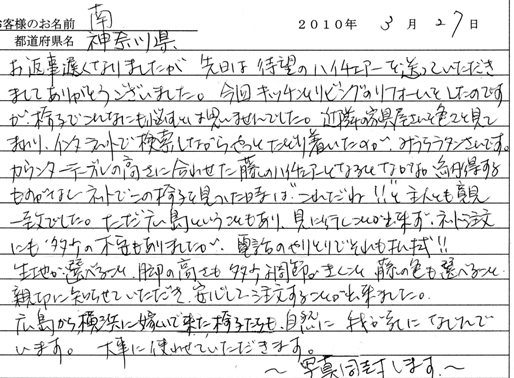 お客様のお名前 南 2010年 3月 27日
都道府県名 神奈川県
お返事遅くなりましたが 先日は待望のハイチェアーを送っていただき
ましてありがとうございました。今回キッチンとリビングのリフォームをしたのです
が椅子でこんなにも悩むとは思いませんでした。近隣の家具屋さんを色々と見て
まわり、インターネットで検索しながらやっとたどり着いたのが、みうらラタンさんです。
カウンターテーブルの高さに合わせた藤のハイチェアーとなるとなかなか納得する
ものがなく ネットでこの椅子を見つけた時は"これだね!!"と主人とも意見
一致でした。ただ広島ということもあり、見に行くことが出来ず、ネット注文
にも多少の不安もありましたが、電話のやりとりでそれも払拭!!
生地が選べること、脚の高さも多少調節がきくこと 藤の色も選べること
親切に知らせていただき、安心して注文することが出来ました。
広島から横浜に嫁いで来た椅子たちも、自然に 我が家になじんで
います。 大事に使わせていただきます。
〜写真同封します。〜